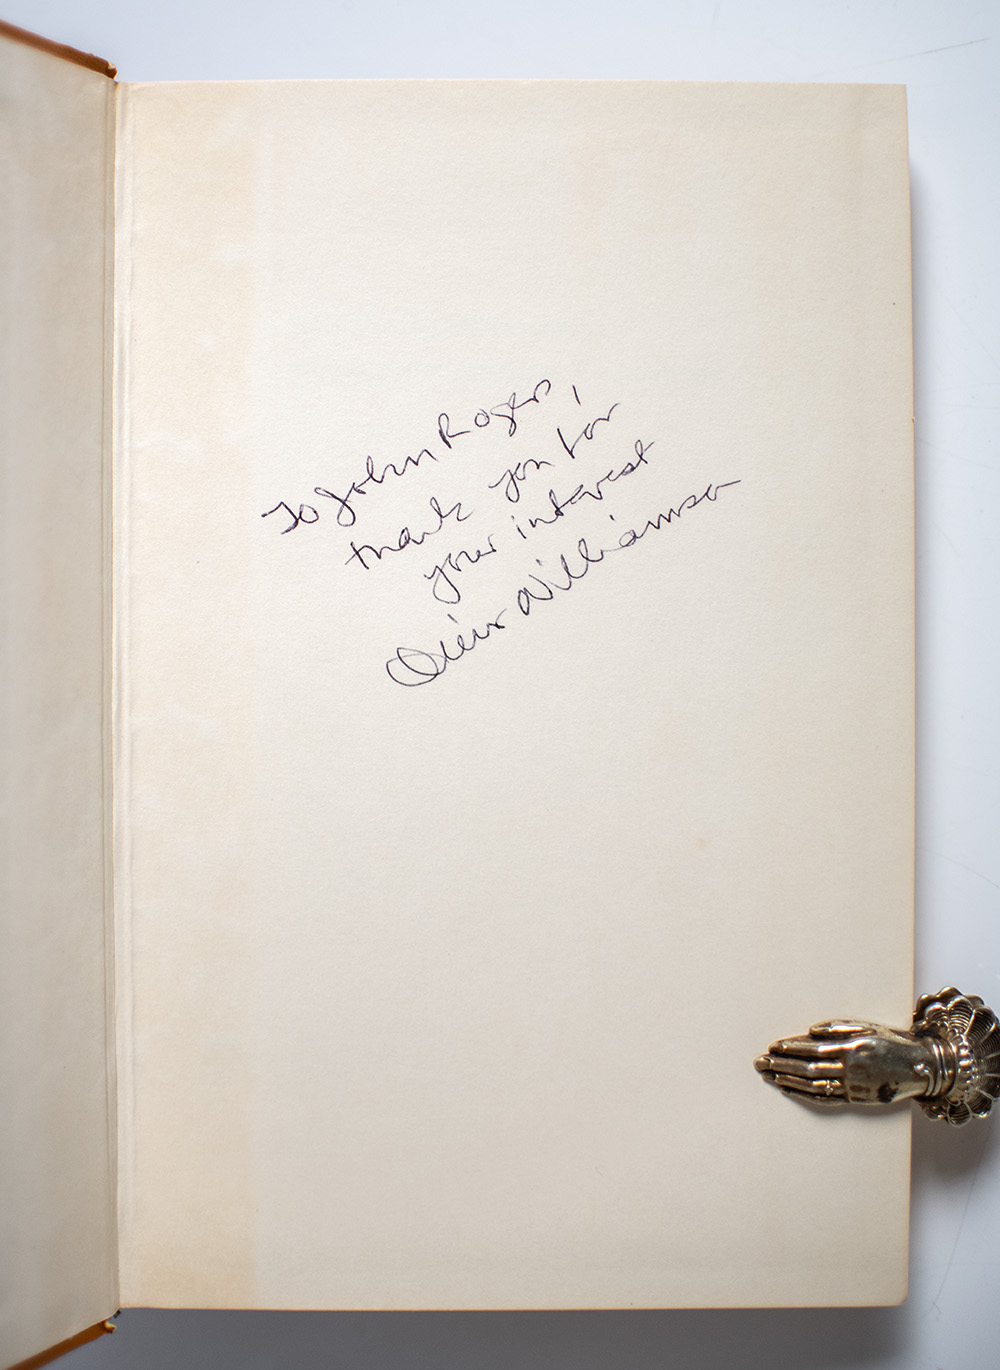 To John Rogers,
thank you for
your interest
Oliver Williamson